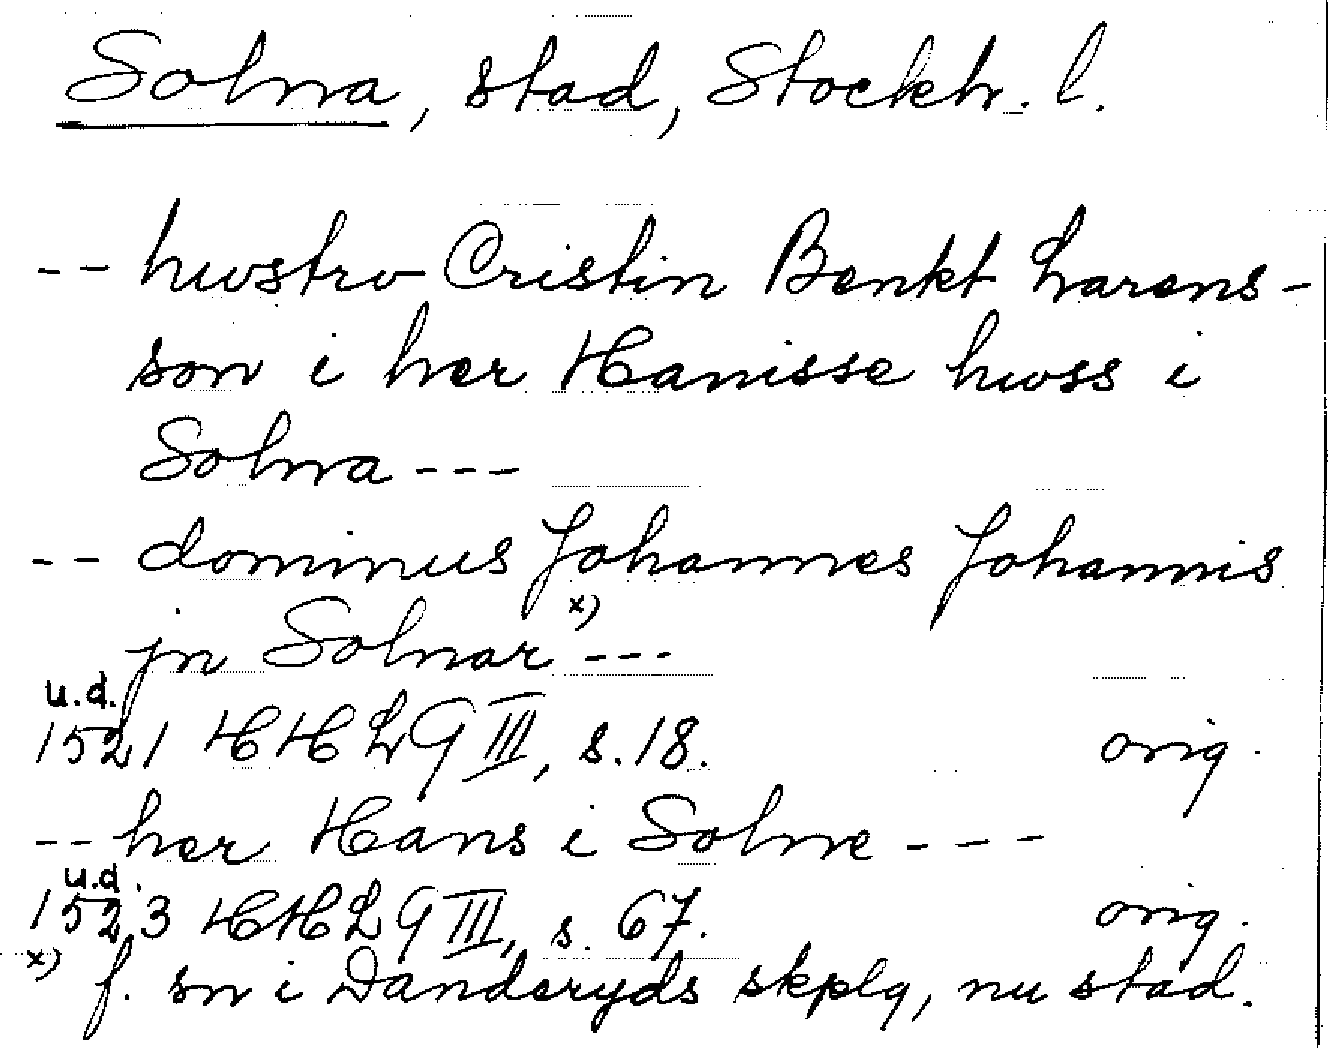 Solna, stad, Stockh. l.
-- hwstrv Cristin Benkt Larens-
son i her Hanisse hwss i
Solna ---
-- dominus Johannes Johannis
jn Solnar x) ---
u.d.
1521 HHLG III, s. 18. orig.
-- her Hans i Solne ---
u.d.
1523 HHLG III, s. 67. orig.
x) f. sn i Danderyds skplg, nu stad.